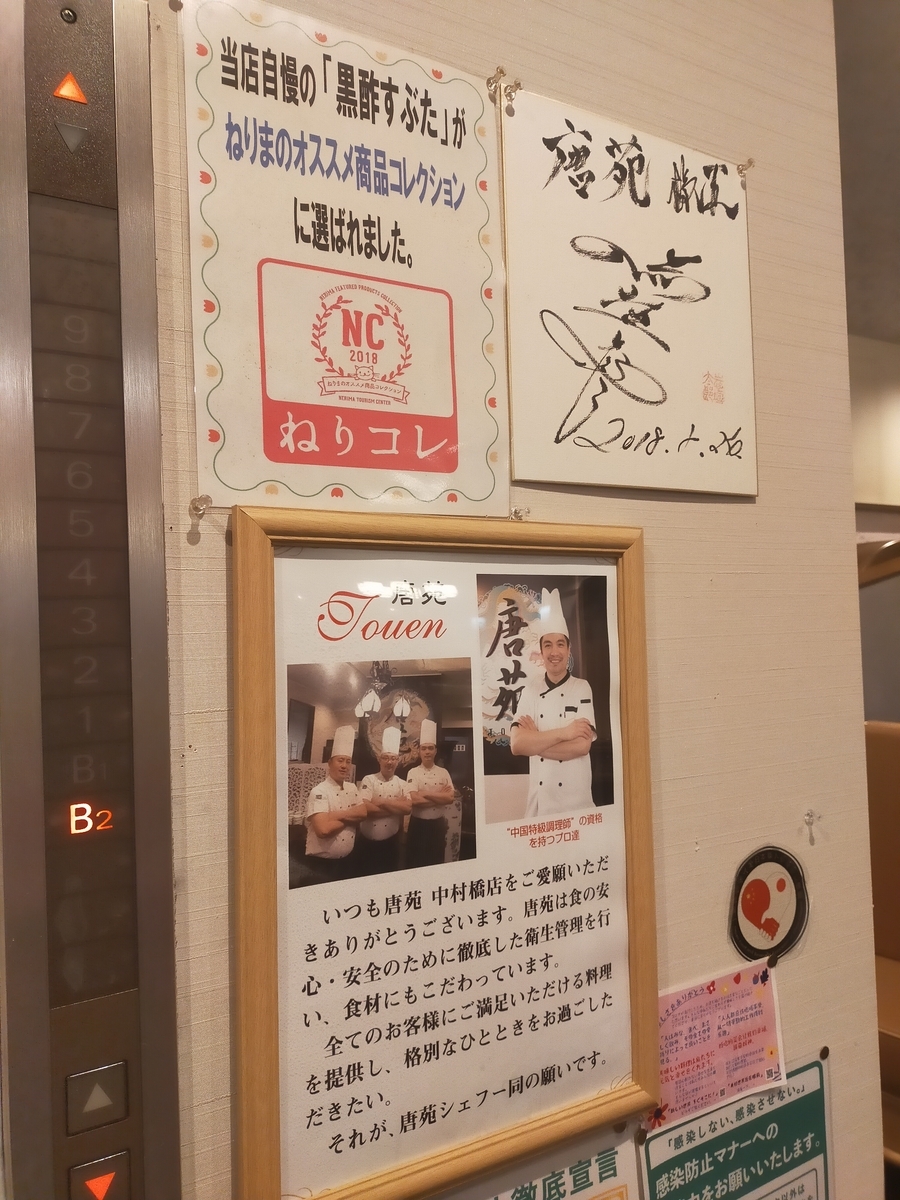 当店自慢の「黒酢すぶた」が
ねりまのオススメ商品コレクション
に選ばれました。
NERIMA FEATURED PRODUCTS COLLECTION
NC
2018
ねりまのオススメ商品コレクション
NERIMA TOURISM CENTER
ねりコレ
唐苑
2018.1.26
9
8
7
6
5
4
3
2
1
B1
B2
唐苑
Touen
唐苑
"中国特級調理師"の資格
を持つプロ達
いつも唐苑 中村橋店をご愛願いただ
きありがとうございます。唐苑は食の安
心・安全のために徹底した衛生管理を行
い、食材にもこだわっています。
全てのお客様にご満足いただける料理
を提供し、格別なひとときをお過ごした
だきたい。
それが、唐苑シェフ一同の願いです。
徹底宣言
「感染しない、感染させない。」
感染防止マナーへの
をお願いいたします。